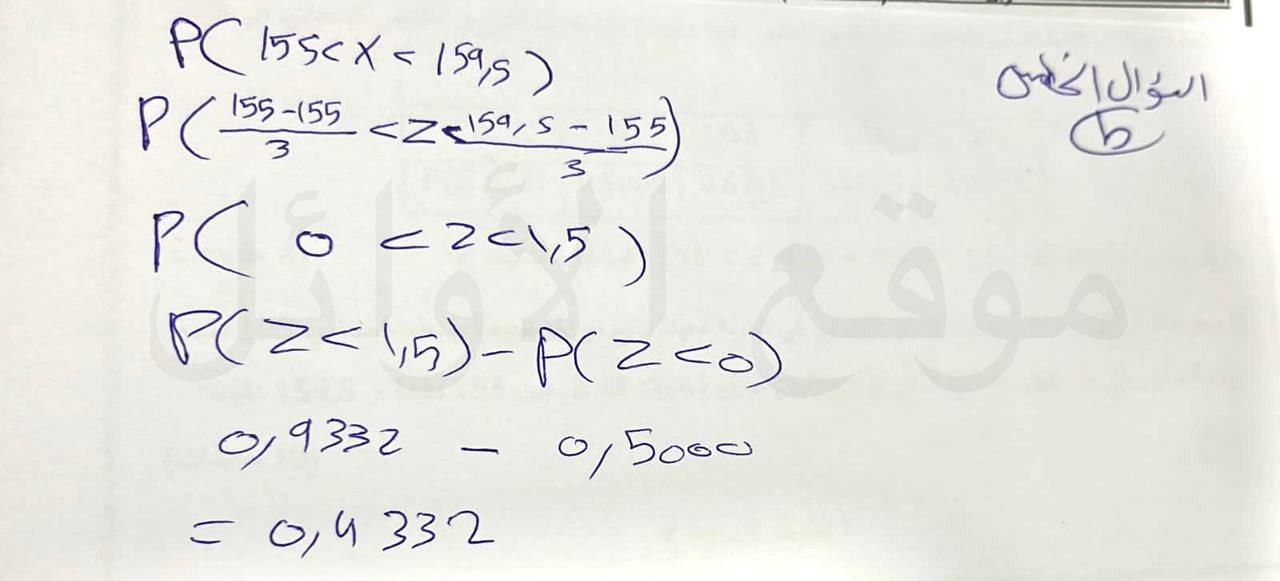 P( 155 < X < 159,5 )
السؤال الخامس
b
P( 155-155/3 < Z < 159,5 - 155/3 )
P( 0 < Z < 1,5 )
موقع الأوائل
P( Z < 1,5 ) - P( Z < 0 )
0,9332 - 0,5000
= 0,4332